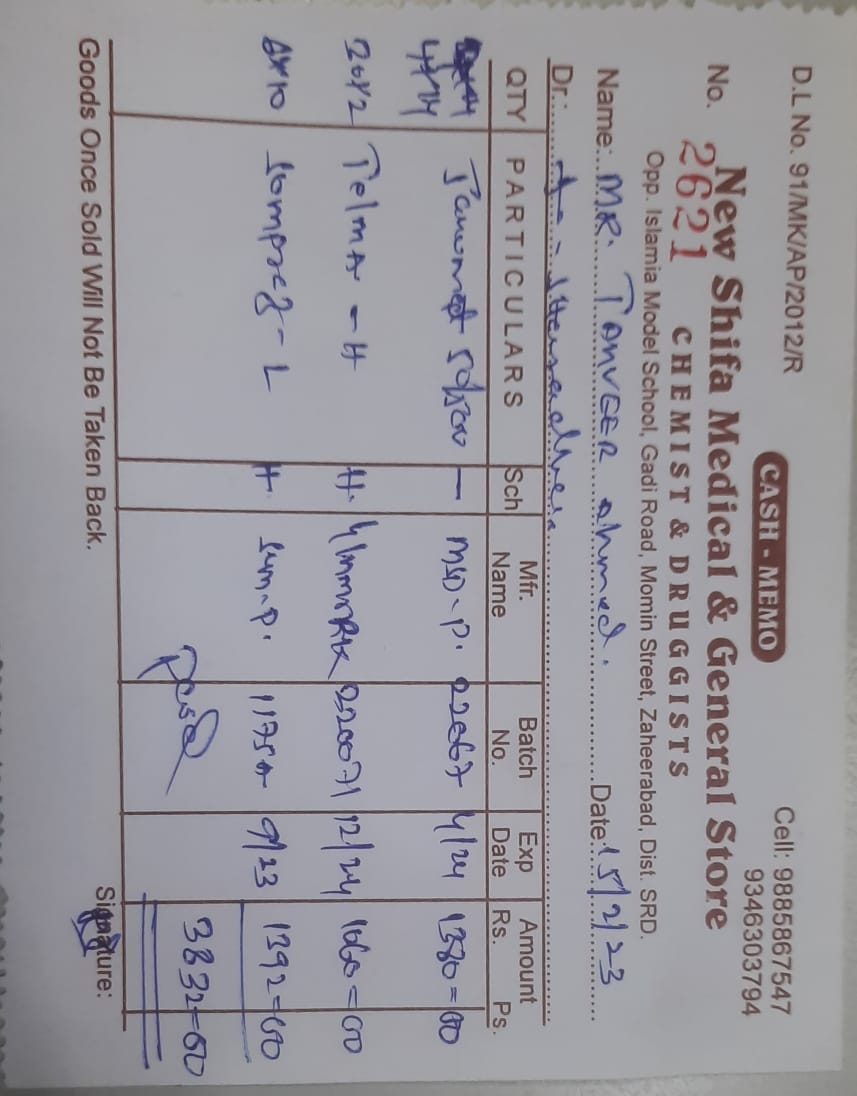 D.L No. 91/MK/AP/2012/R
CASH - MEMO
Cell: 9885867547
9346303794
No. 2621
New Shifa Medical & General Store
CHEMIST & DRUGGISTS
Opp. Islamia Model School, Gadi Road, Momin Street, Zaheerabad, Dist. SRD.
Name: MR. TANVEER Ahmed. Date: 15/2/23
Dr.:
QTY PARTICULARS Sch Mfr. Name Batch No. Exp Date Amount Rs. Ps.
Janumet 50/500 — MSD-P. 22667 4/24 1380=00
4x14
Telma - H H. 220071 12/24 1060=00
6x10 Sompraz - L H Sun-P. 9/23 1392=00
3832=00
Goods Once Sold Will Not Be Taken Back.
Signature: